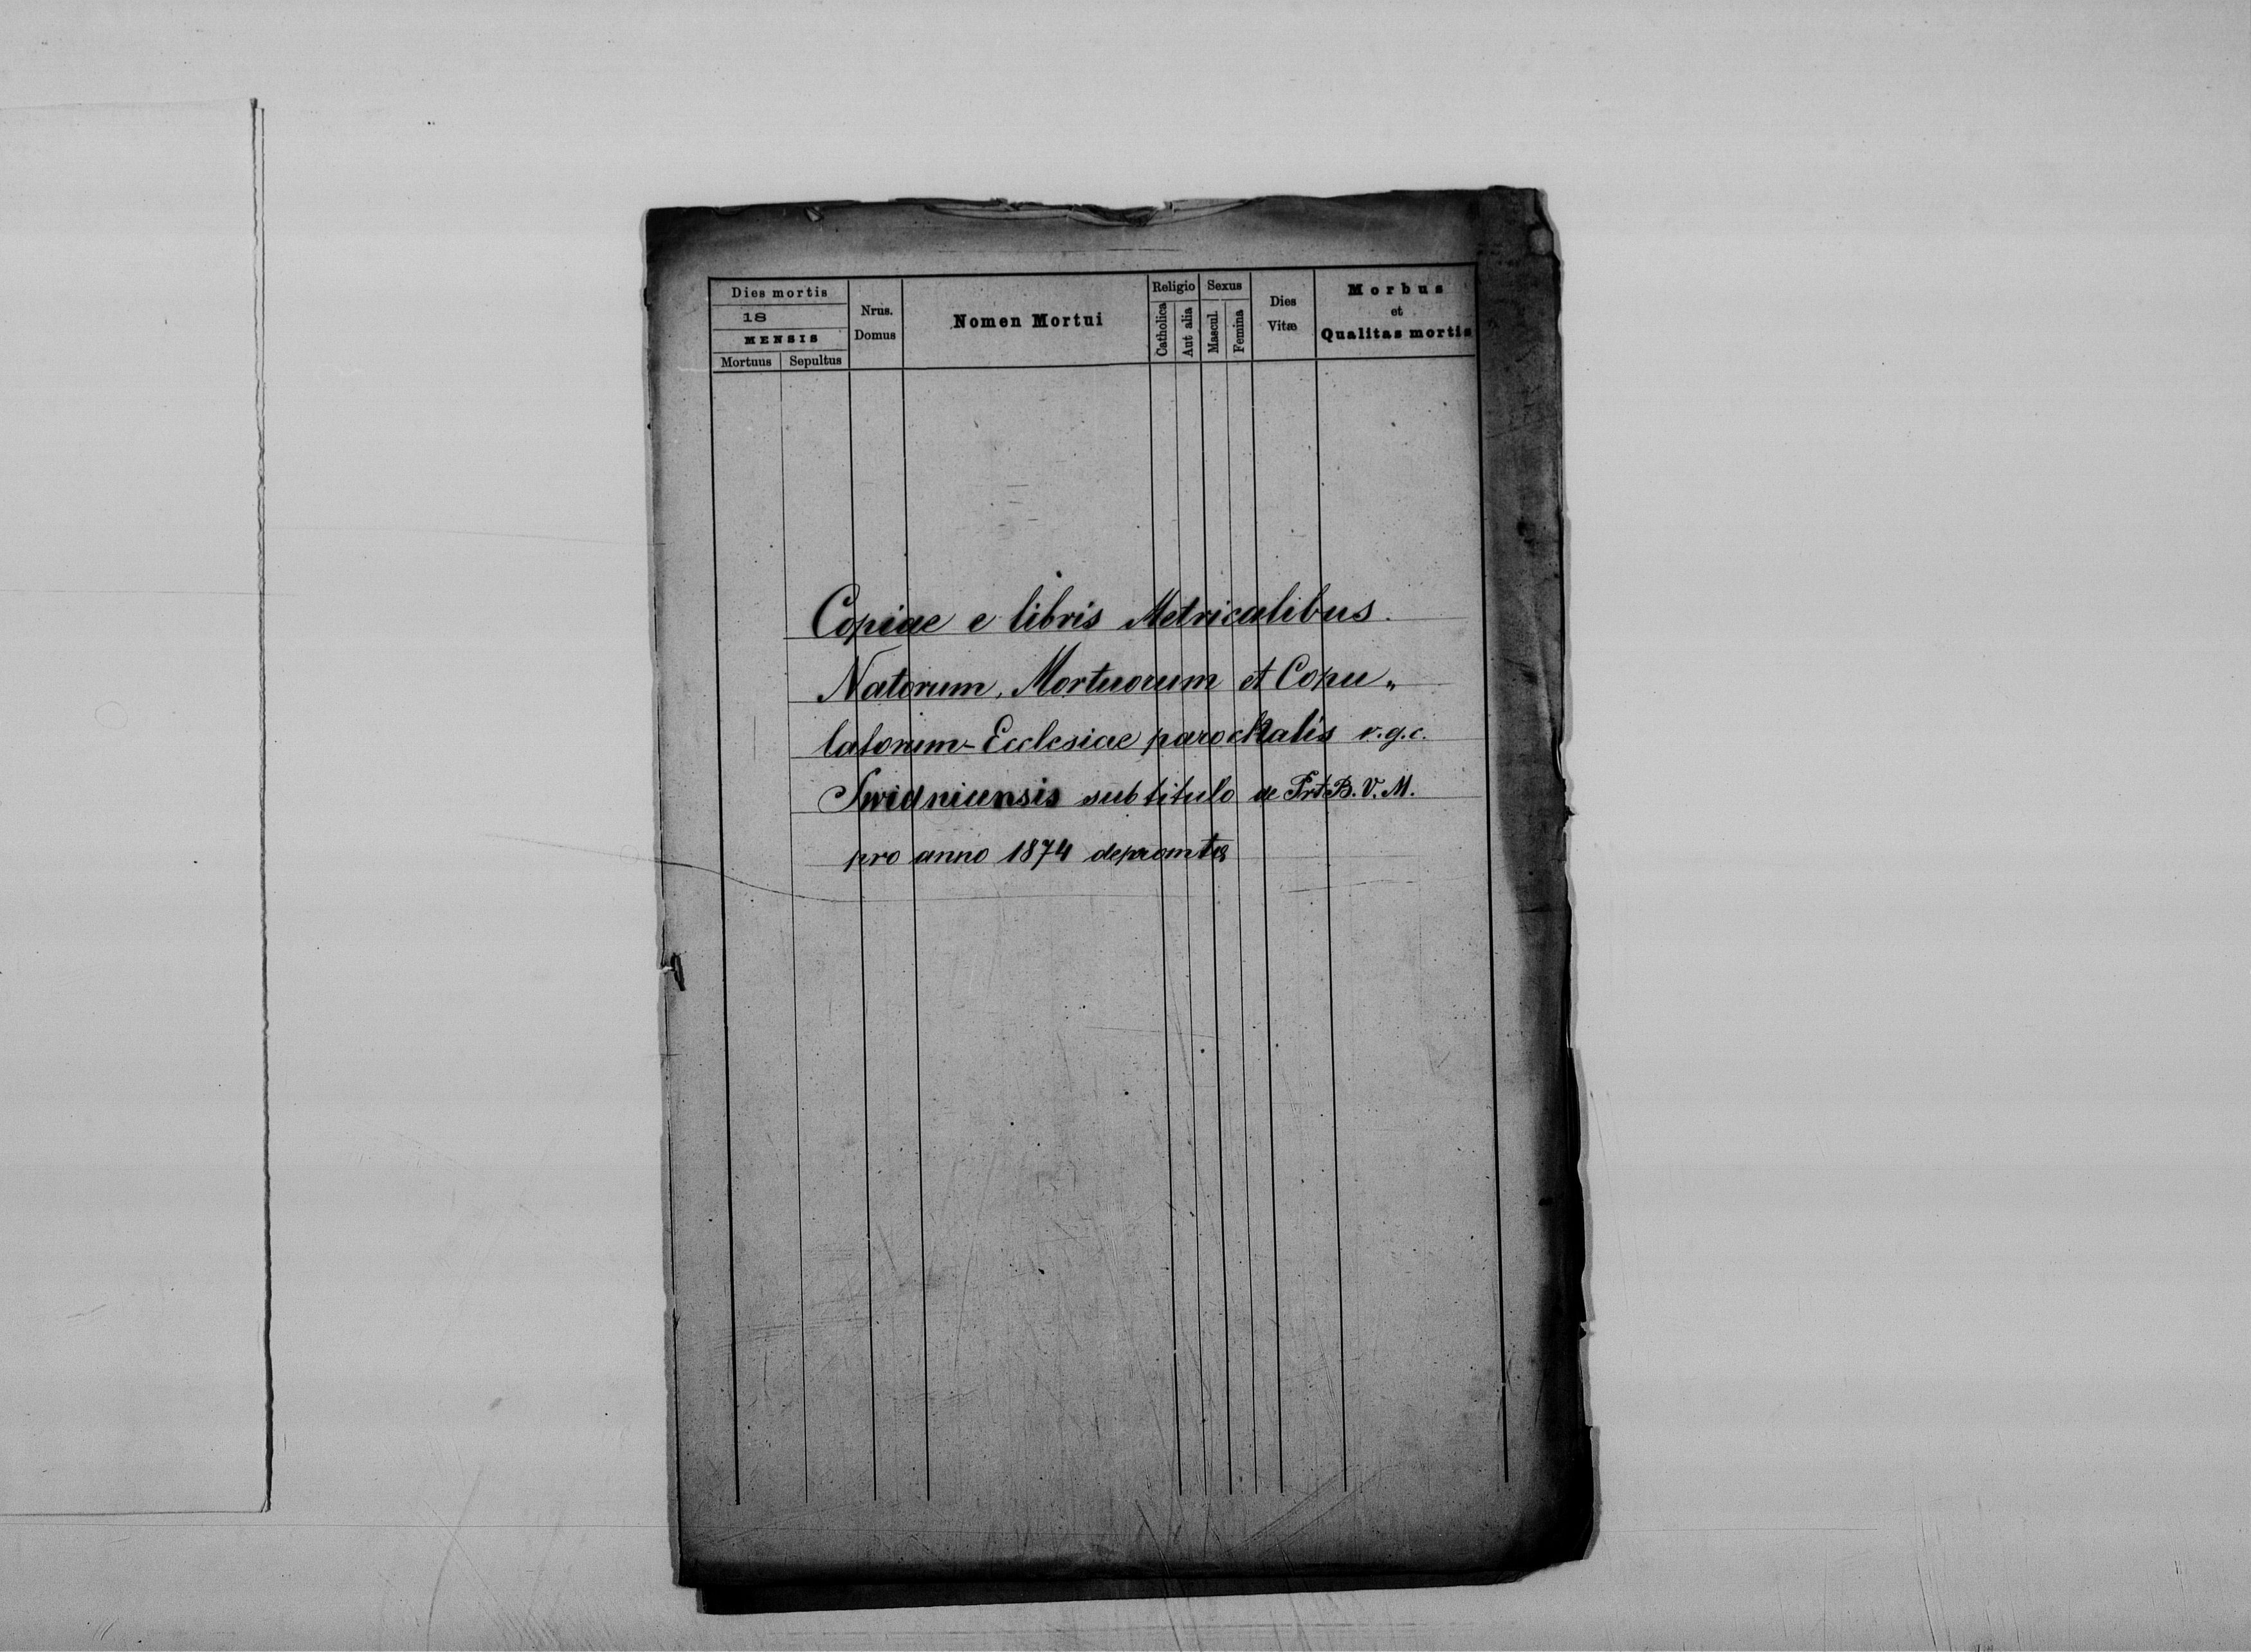 Dies mortis
18
MENSIS
Mortuus Sepultus
Nrus.
Domus
Nomen Mortui
Religio
Catholica
Aut alia
Sexus
Mascul.
Femina
Dies
Vitæ
Morbus
et
Qualitas mortis
Copiae e libris Metricalibus.
Natorum, Mortuorum et Copu„
latorum - Ecclesiae parochalis r.g.c.
Swidniunsis sub titulo de Prt. B. V. M.
pro anno 1874 depromtae